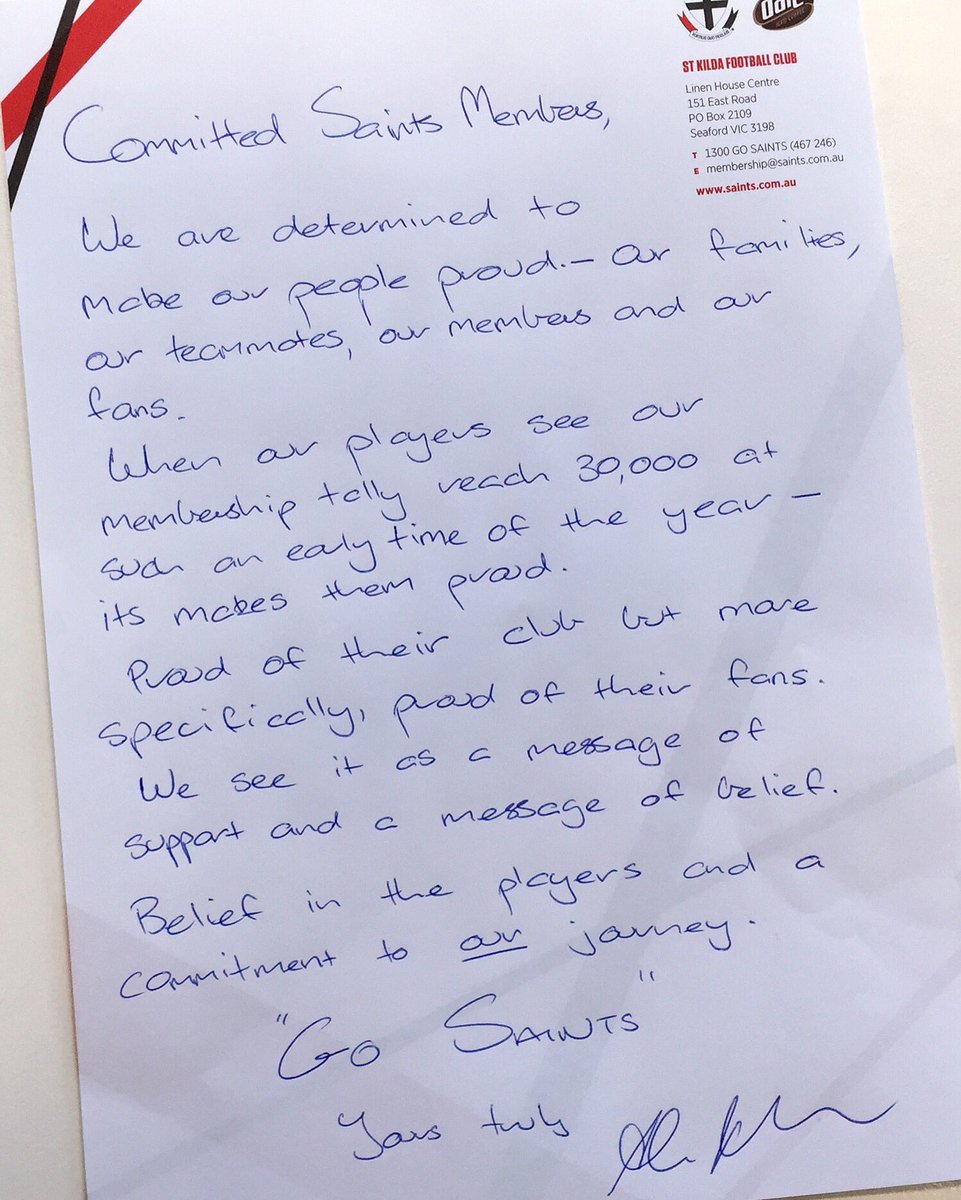 Dare
ICED COFFEE
ST KILDA FOOTBALL CLUB
Linen House Centre
151 East Road
PO Box 2109
Seaford VIC 3198
T 1300 GO SAINTS (467 246)
E membership@saints.com.au
www.saints.com.au
Committed Saints Members,
We are determined to
make our people proud.— Our families,
our teammates, our members and our
fans.
When our players see our
membership tally reach 30,000 at
such an early time of the year —
its makes them proud.
Proud of their club but more
specifically, proud of their fans.
We see it as a message of
support and a message of belief.
Belief in the players and a
commitment to our journey.
"GO SAINTS"
Yours truly